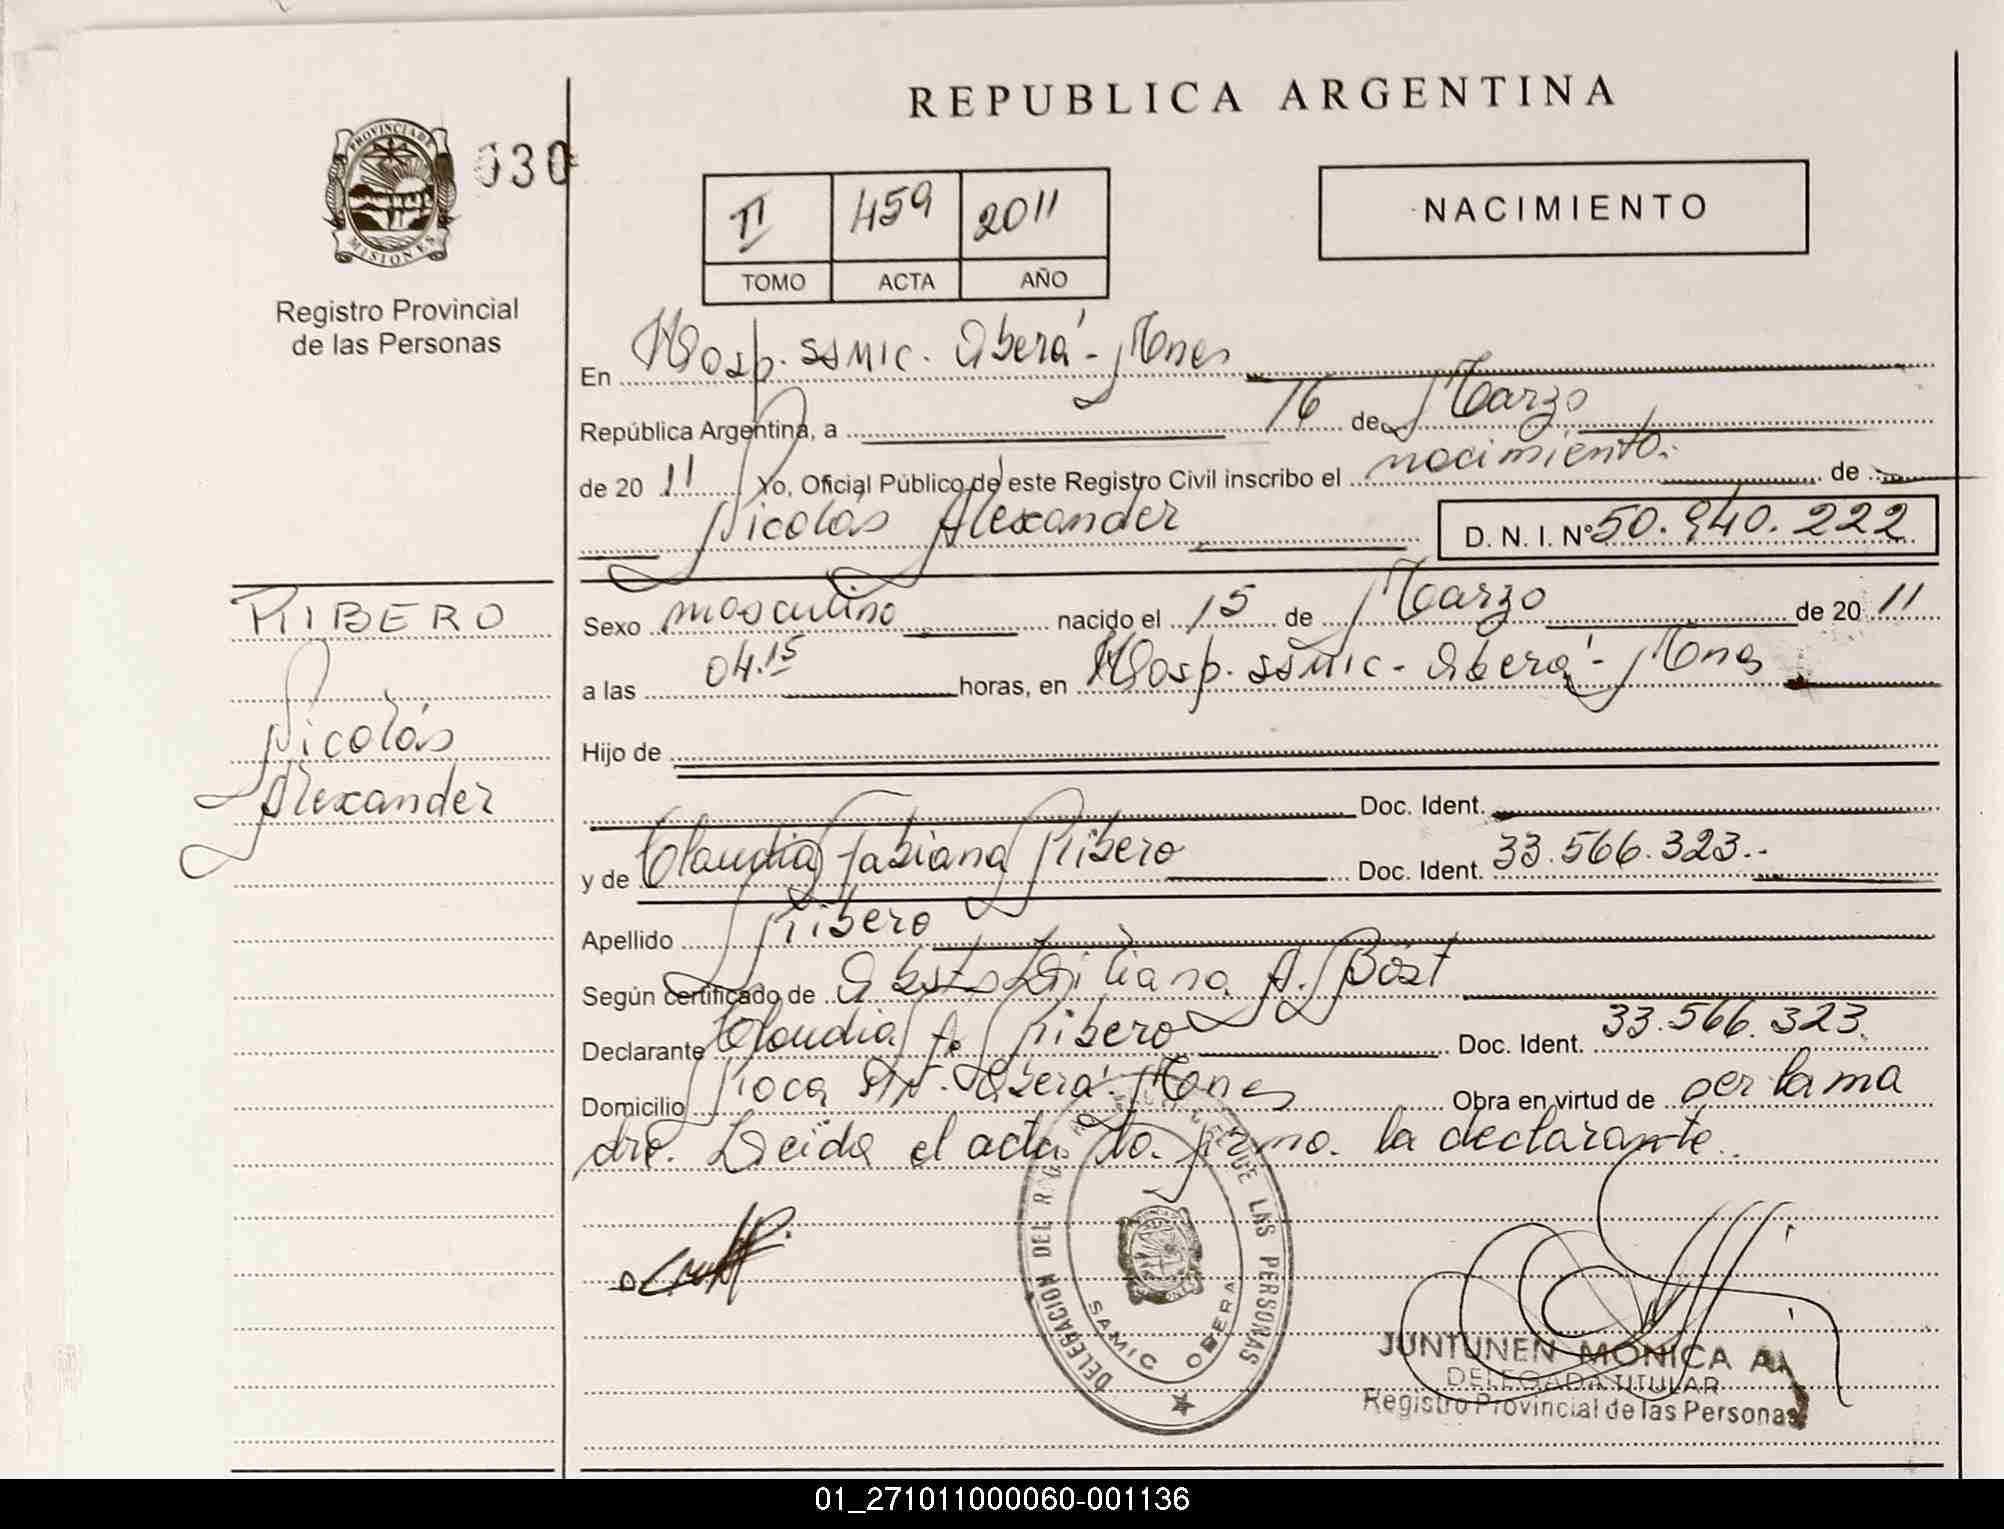 REPUBLICA ARGENTINA
PROVINCIA DE
MISIONES
030
Registro Provincial
de las Personas
II 459 2011
TOMO ACTA AÑO
NACIMIENTO
En Hosp. SSMIC. Oberá - Mnes
República Argentina, a 16 de Marzo
de 20 11 Yo, Oficial Público de este Registro Civil inscribo el nacimiento. de
Nicolás Alexander
D. N. I. Nº 50.940.222
RIBERO
Nicolás
Alexander
Sexo masculino nacido el 15 de Marzo de 20 11
a las 04.15 horas, en Hosp. SSMIC - Oberá - Mnes
Hijo de
Doc. Ident.
y de Claudia Fabiana Ribero Doc. Ident. 33.566.323.-
Apellido Ribero
Según certificado de Obst. Liliana A.
Declarante Claudia F. Ribero Doc. Ident. 33.566.323.
Domicilio Roca S/N. Oberá - Mnes Obra en virtud de ser la ma
dre. Leída el acta la firma la declarante.
DELEGACION DEL REGISTRO PROVINCIAL DE LAS PERSONAS
SAMIC OBERA
JUNTUNEN MONICA A.
DELEGADA TITULAR
Registro Provincial de las Personas
01_271011000060-001136